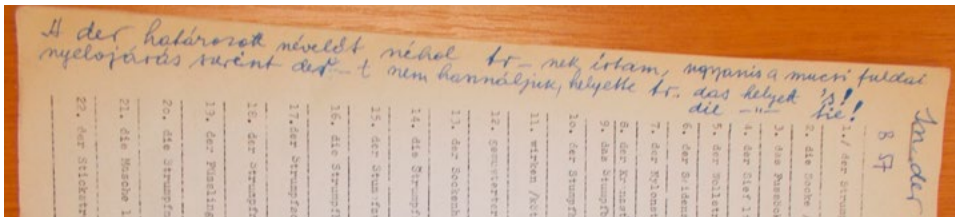 A der határozott névelőt néhol tr- nek írtam, ugyanis a mucsi fuldai
nyelvjárás szerint der -- t nem használjuk, helyette tr. das helyett 's!
die -"- tie!
In der
8 57
1./ der Strum
2. die Socke /
3. das FussSock
4. der Sief l
5. der Wollst
6. der Seidens
7. der Nylonst
8. der Kr nnst
9. das Stumpf
10. der Stumpf
11. wirken /köt
12. gemusterter
13. der Sockenh
14. die Strumpf
15. der Stumpfst
16. die Strumpf
17. der Strumpfs
18. der Strumpf
19. der Füssling
20. die Strumpfn
21. die Masche l
22. der Stickstr